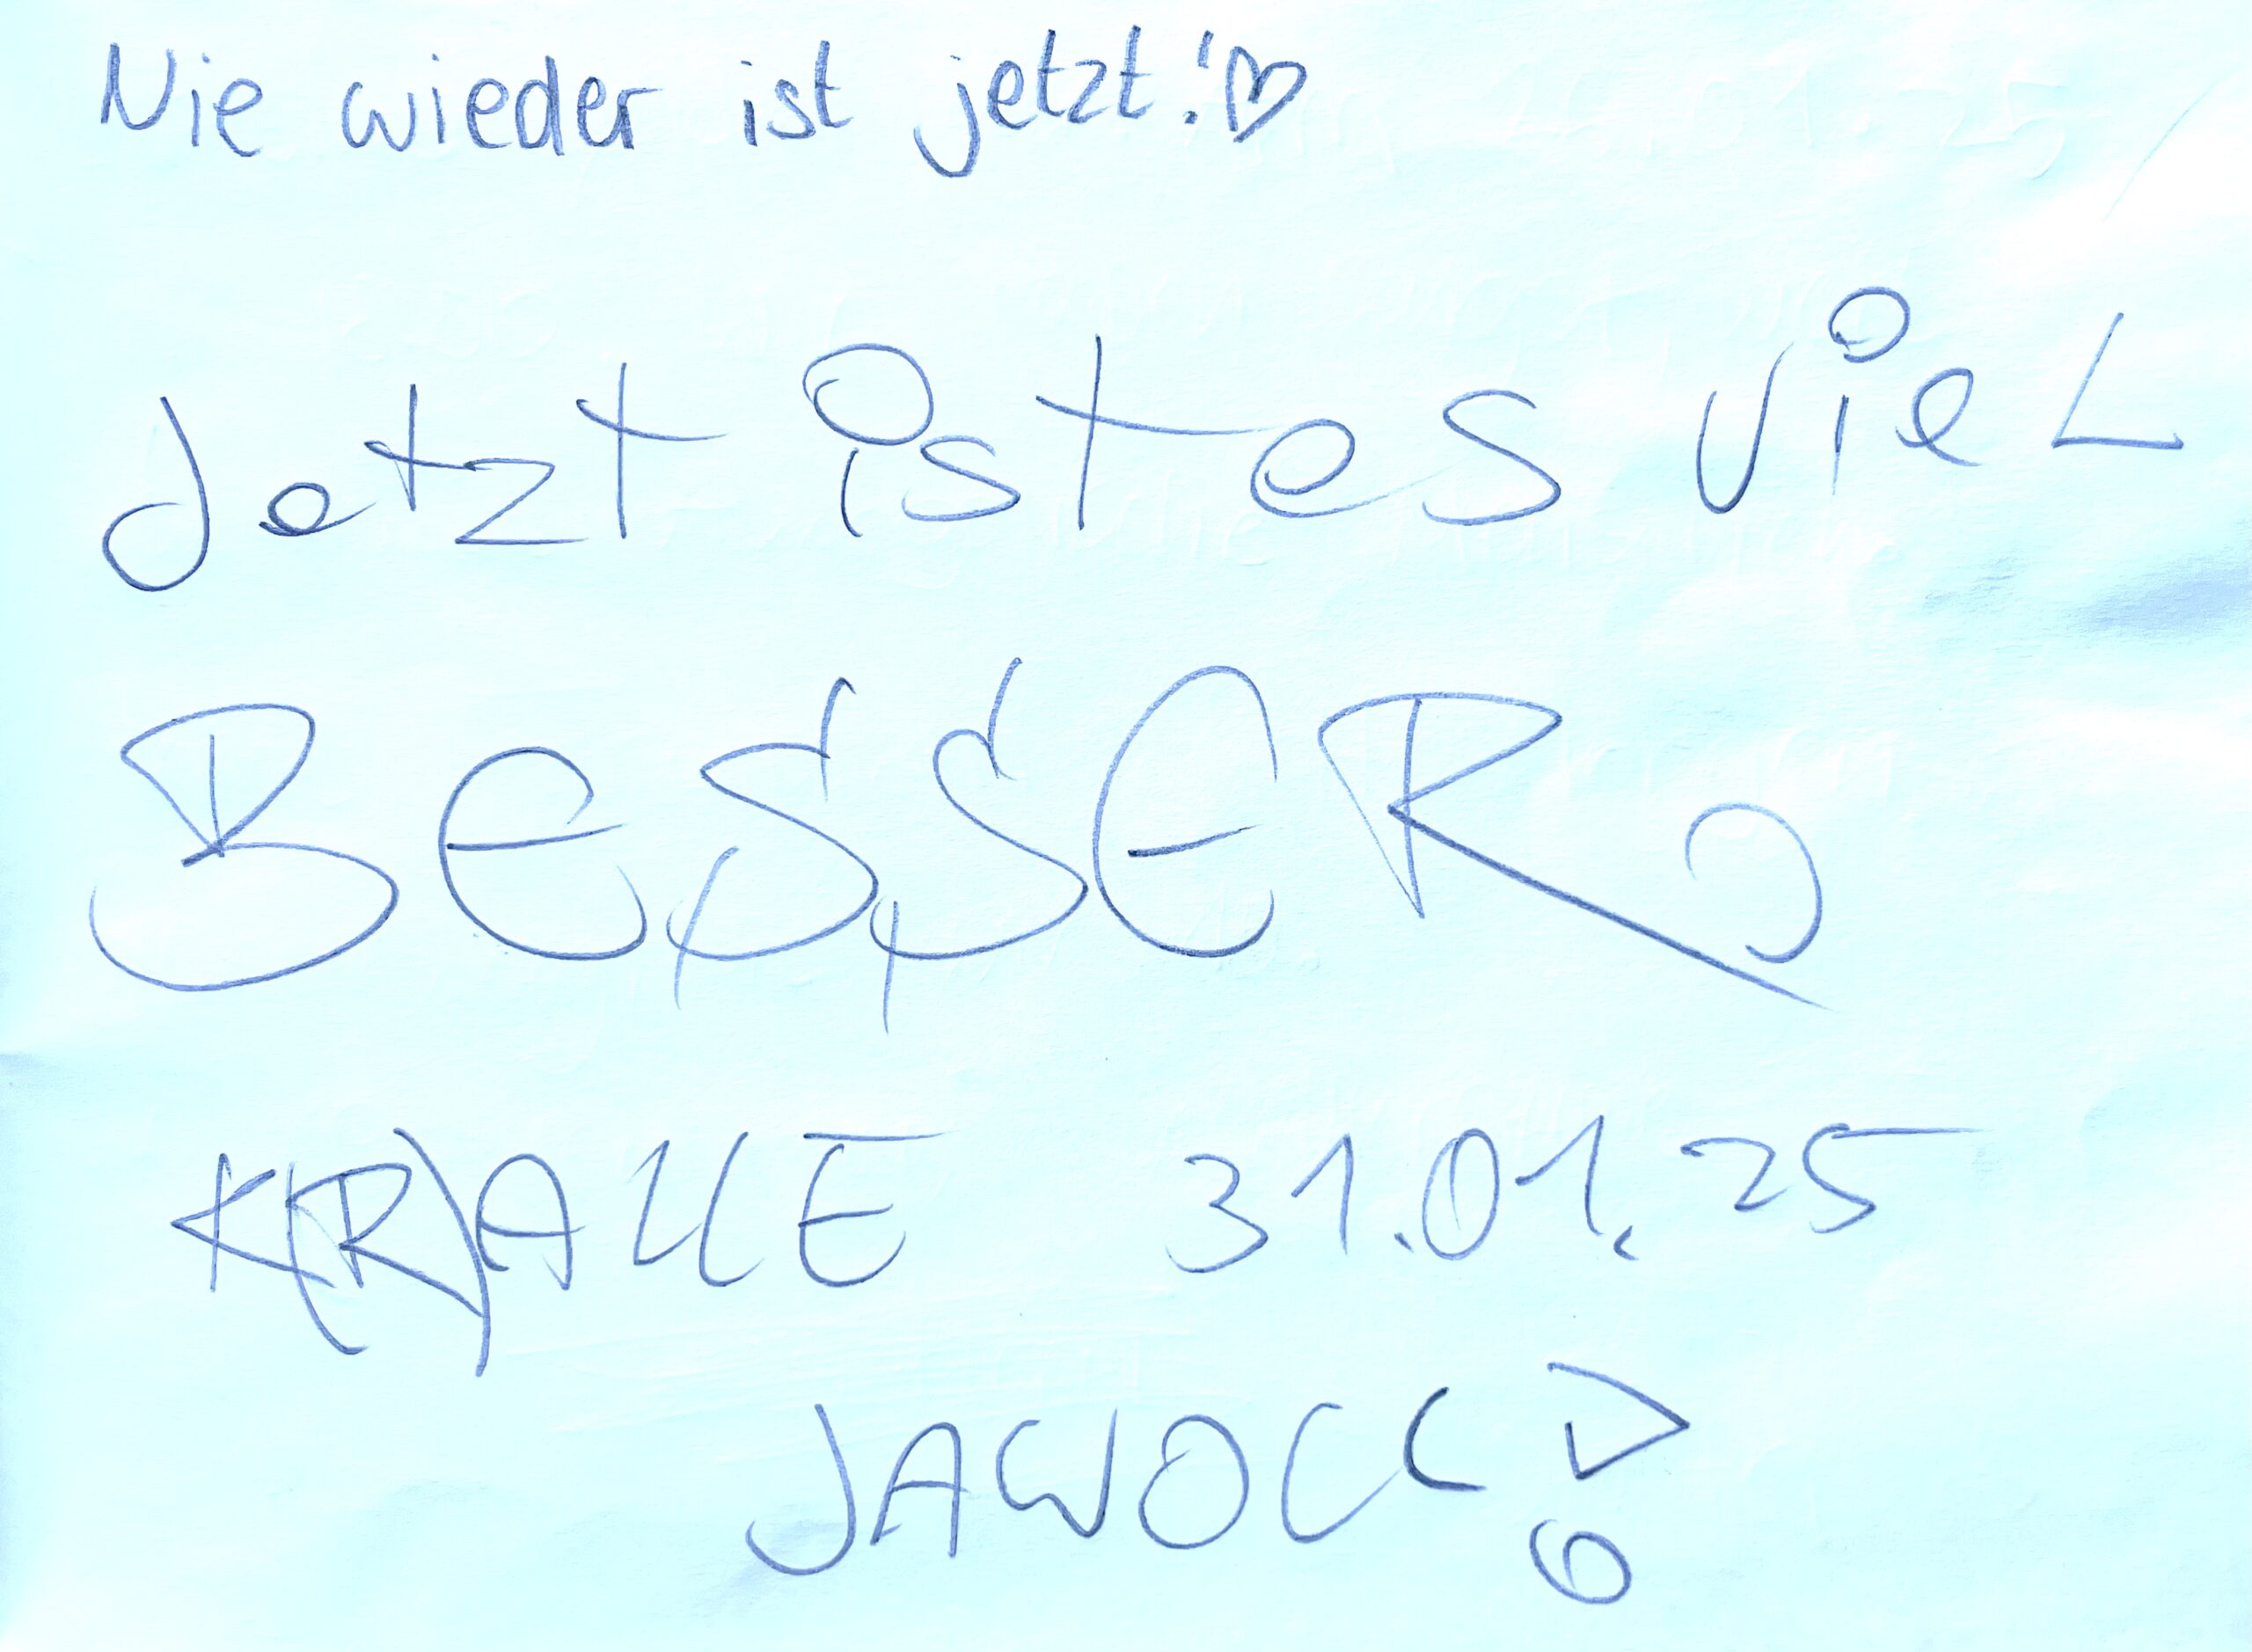 Nie wieder ist jetzt!♡
Jetzt ist es viel
BESSER,
K(R)ALLE 31.01.25
JAWOLL!